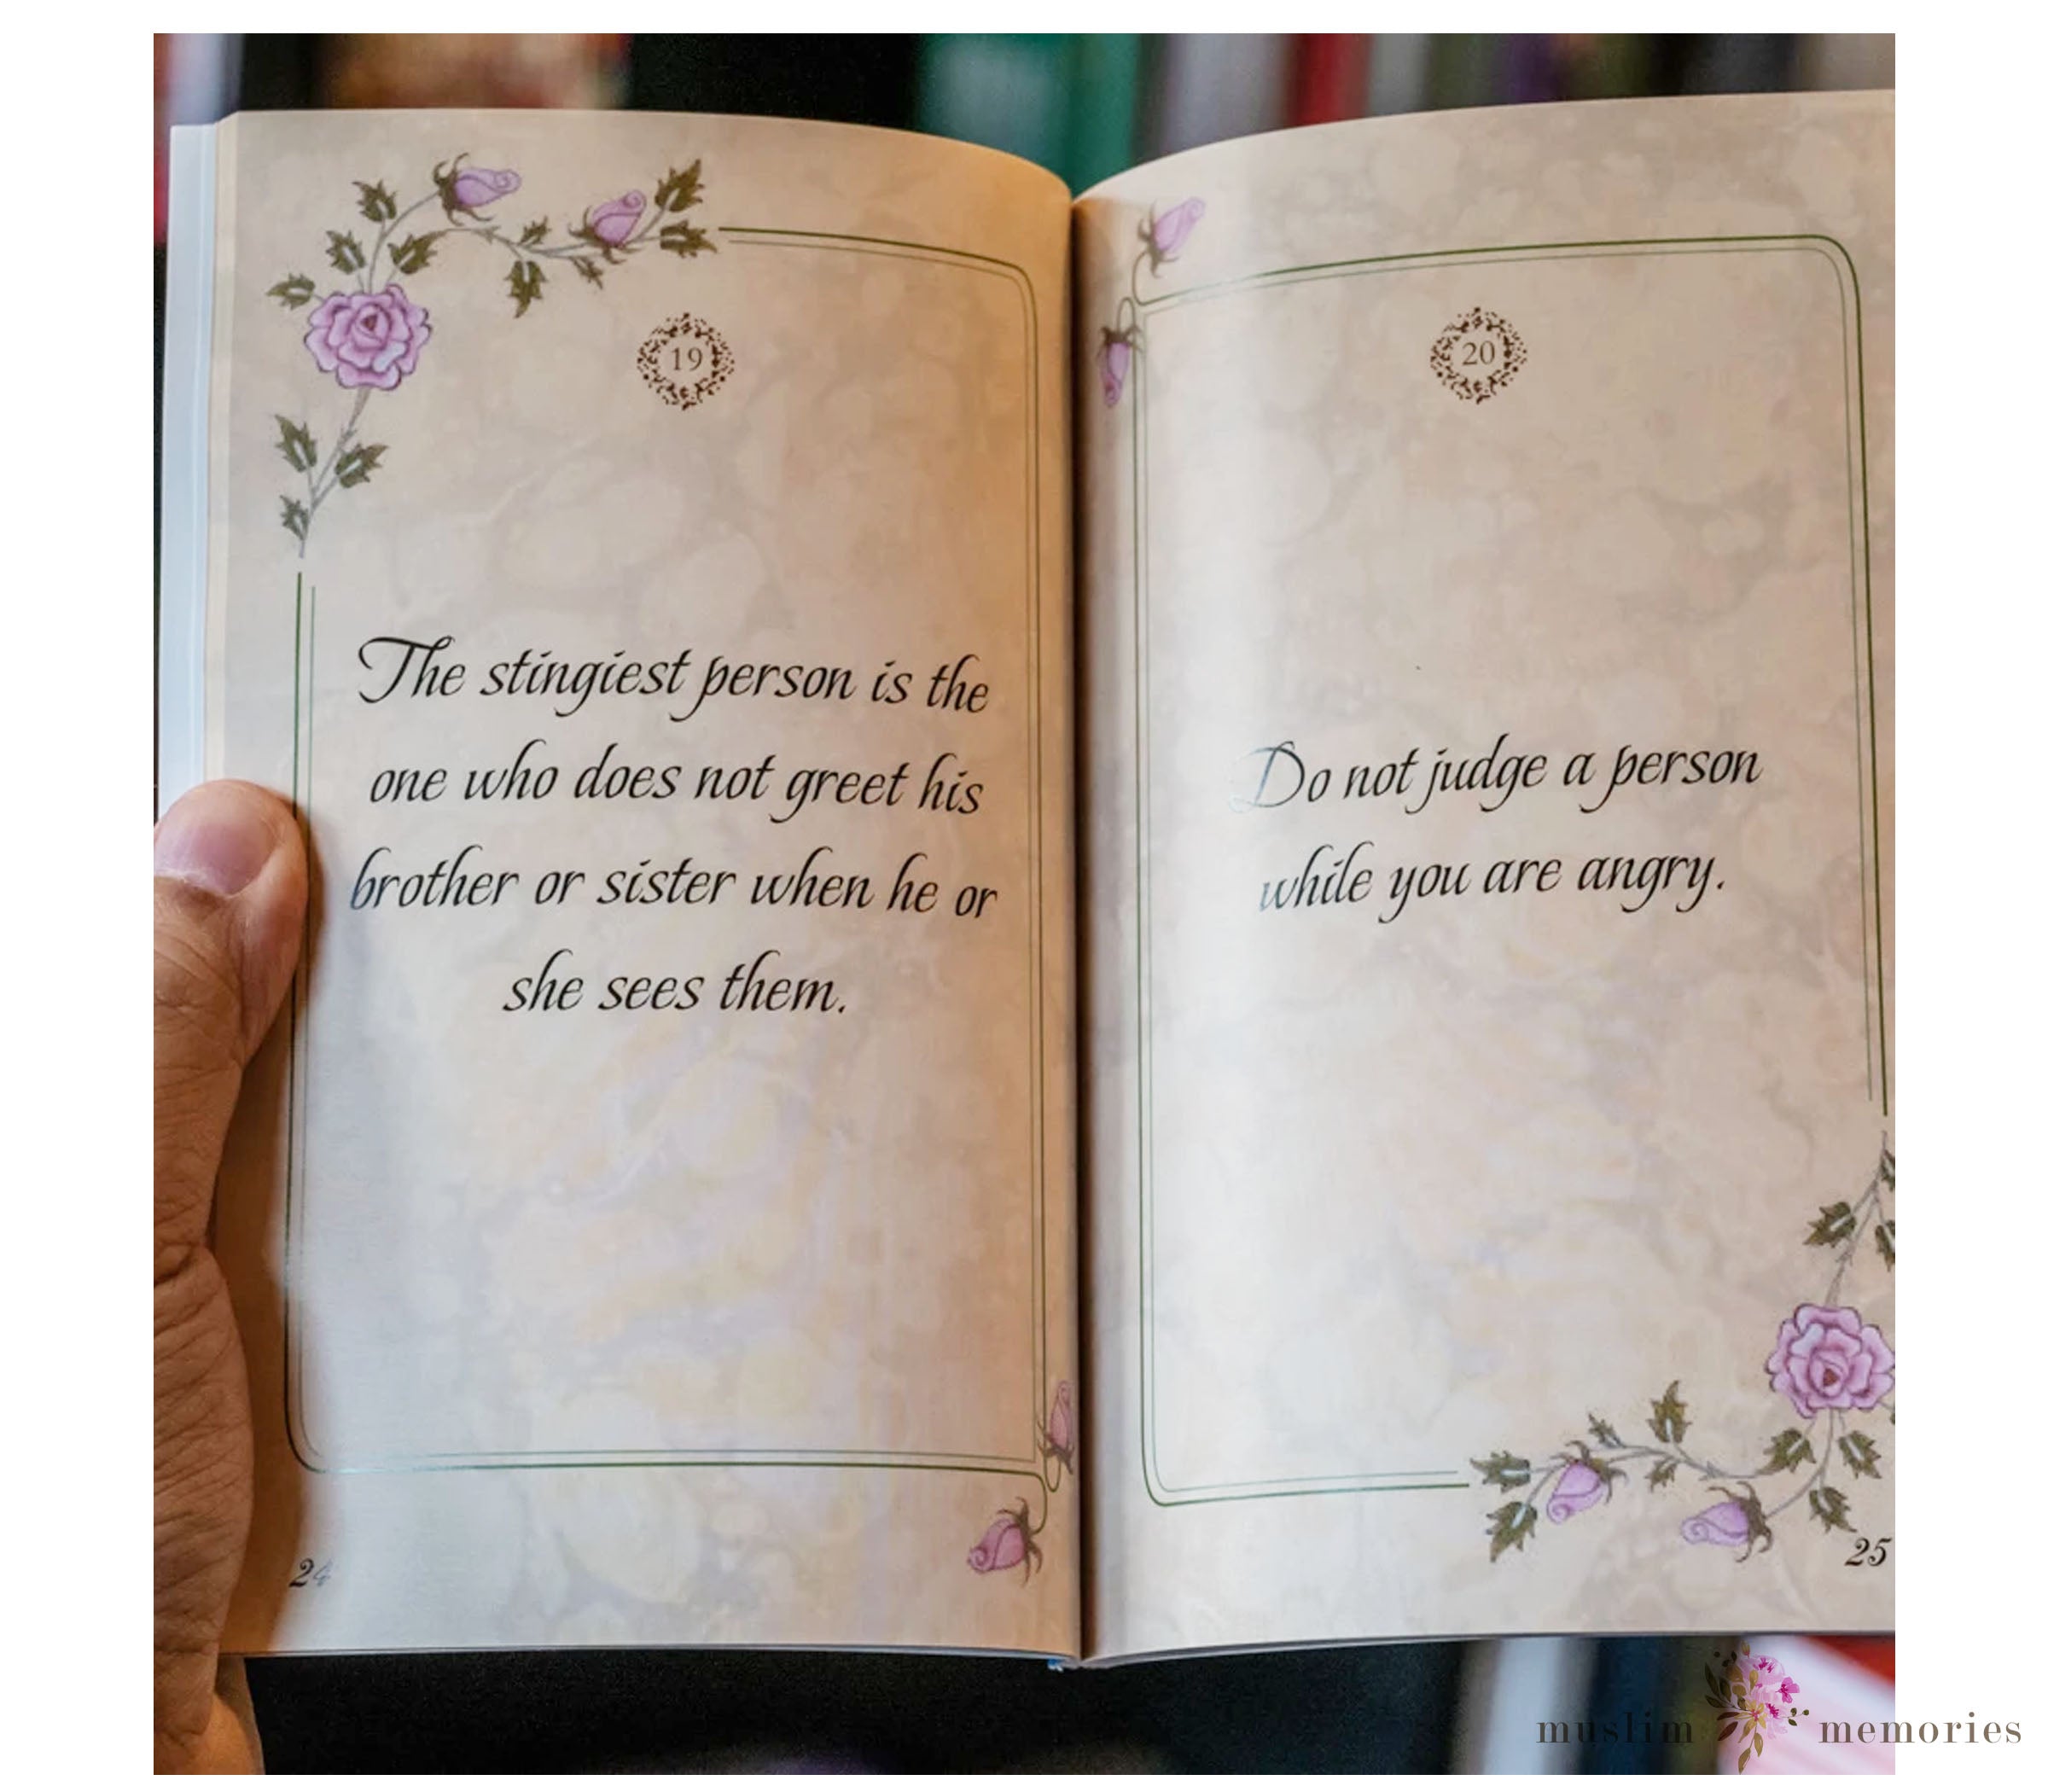 19
The stingiest person is the
one who does not greet his
brother or sister when he or
she sees them.
24
20
Do not judge a person
while you are angry.
25
muslim memories